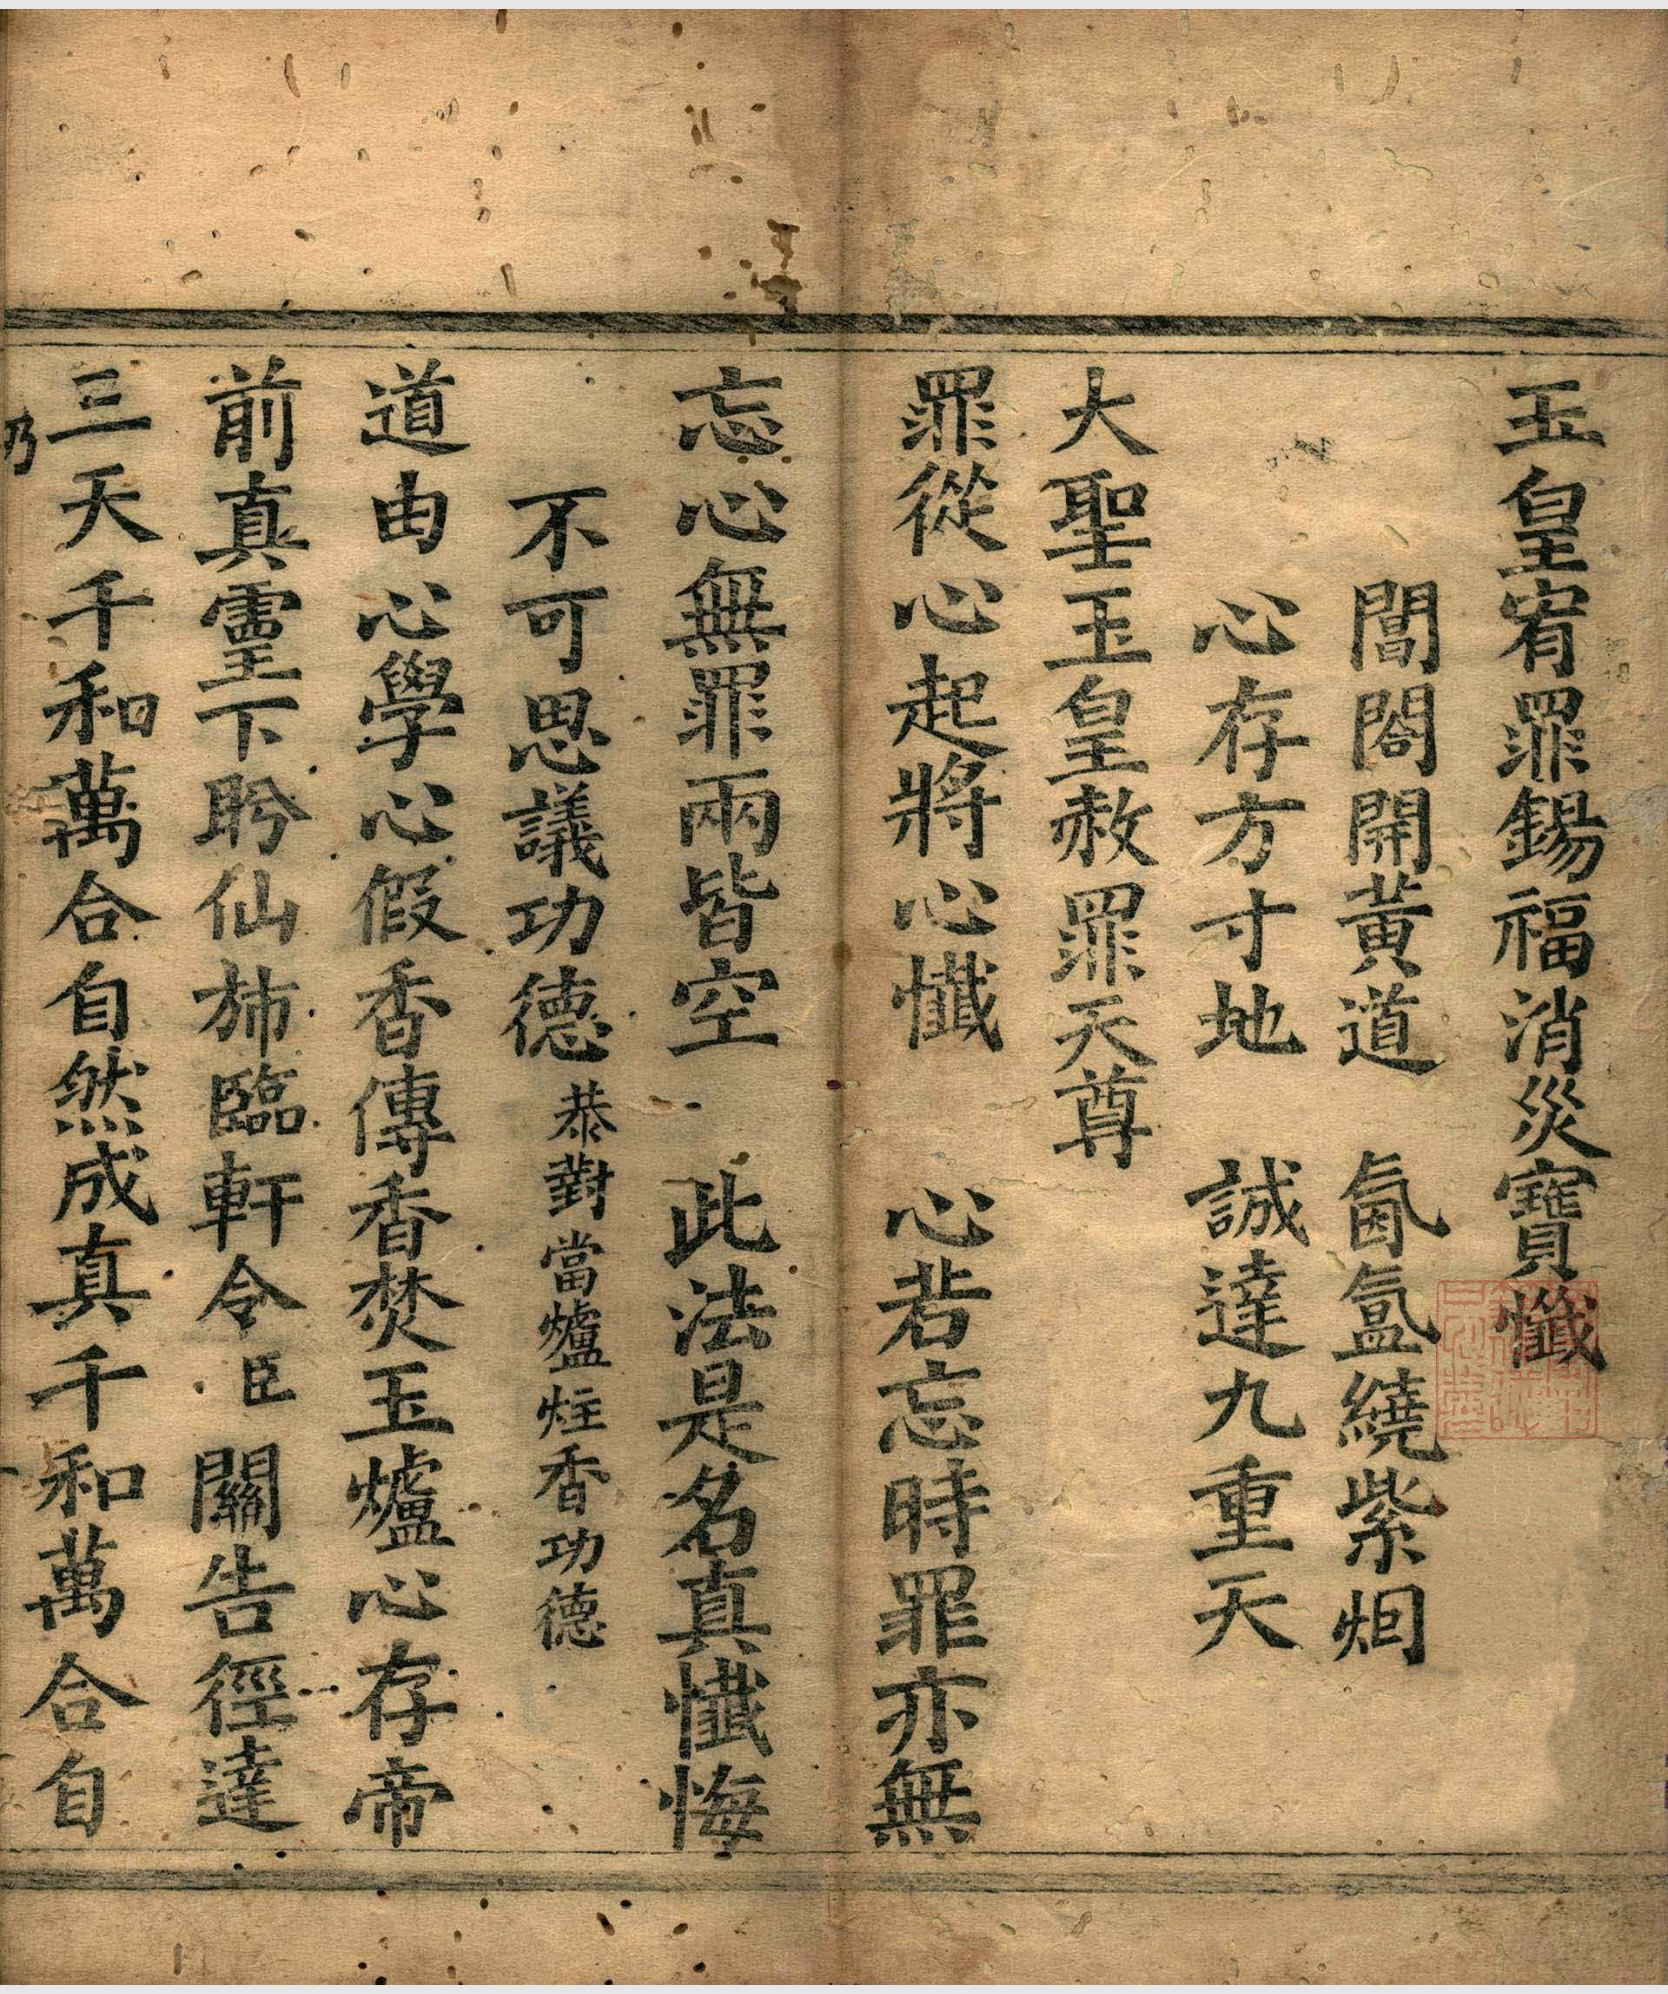 玉皇宥罪錫福消災寶懺
閶閤開黃道　氤氳繞紫烟
心存方寸地　誠達九重天
大聖玉皇赦罪天尊
罪從心起將心懺　心若忘時罪亦無
忘心無罪兩皆空　此法是名真懺悔
不可思議功德恭對當爐炷香功德
道由心學心假香傳香焚玉爐心存帝
前真靈下盻仙斾臨軒令臣關告徑達
三天千和萬合自然成真千和萬合自
乃